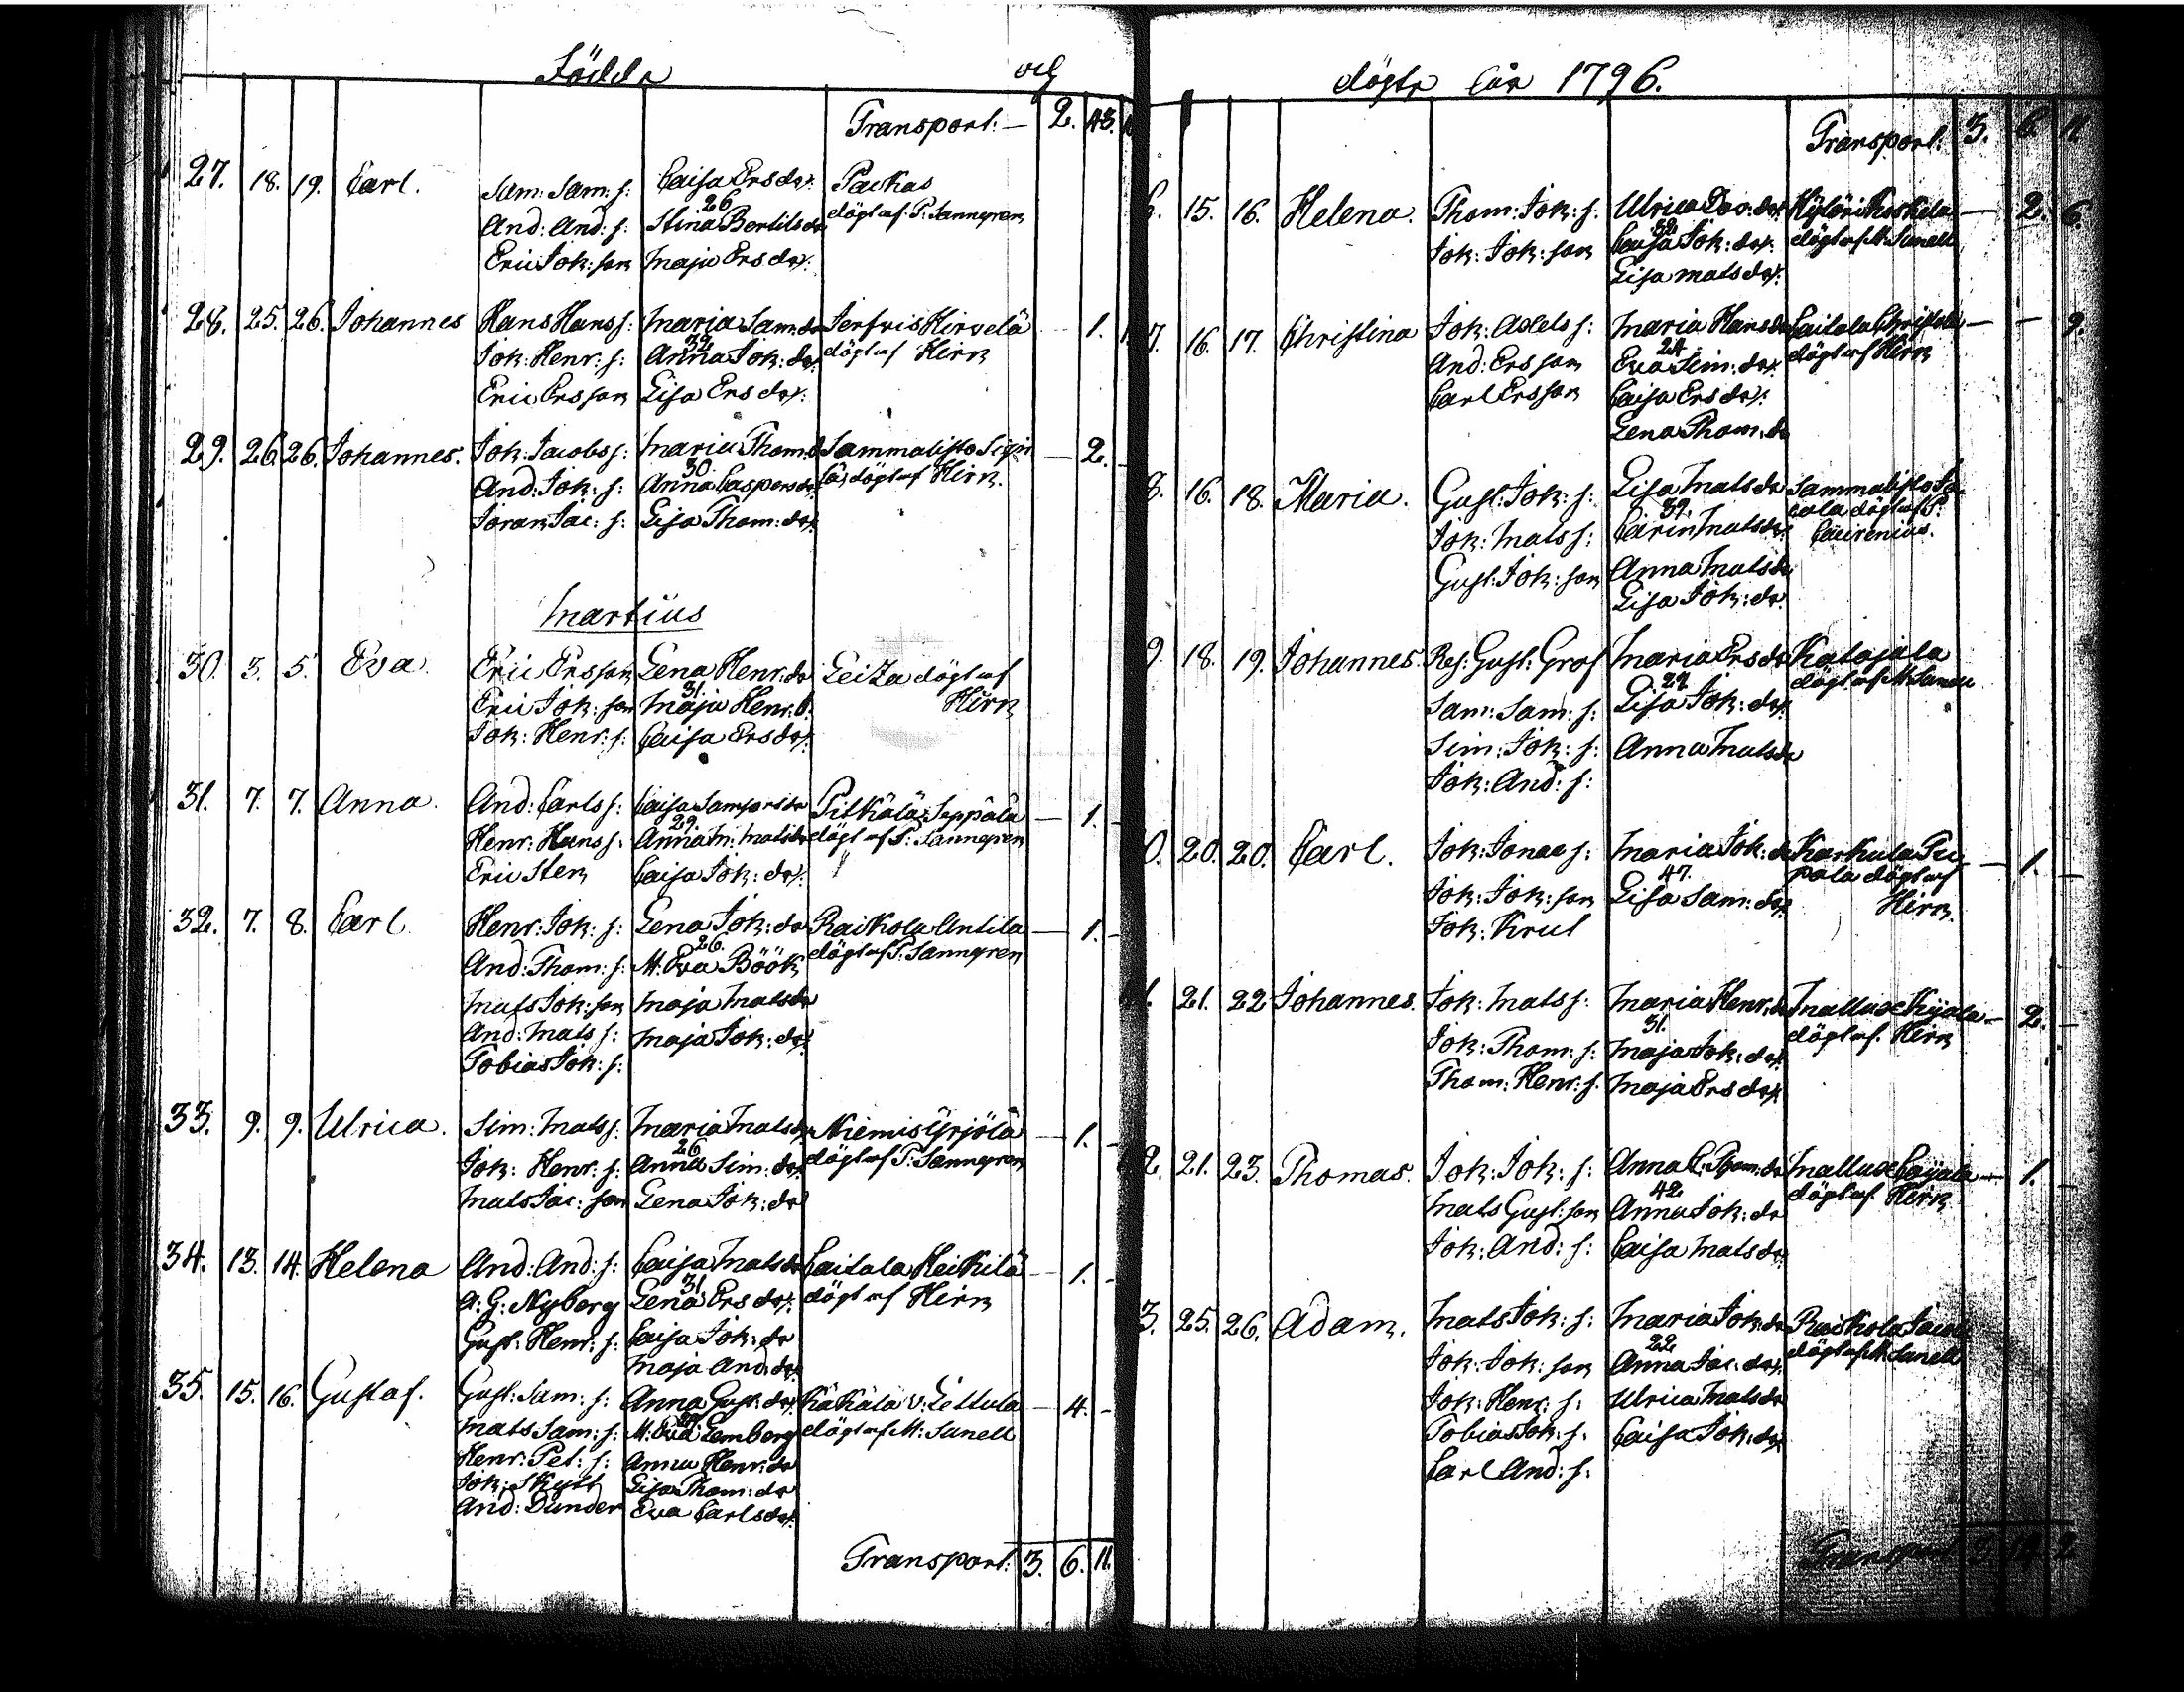 Födde och
Transport: — 2. 43.
27. 18. 19. Carl. Sam: Sam: s: Caisa Ersdr. Packas
26
And: And: s: Stina Bertilsdr döpt af P: Sanngren
Eric Joh: son Maja Ersdr.
28. 25. 26. Johannes Hans Hans s: Maria Sam: dr Jerfvis Hirvelä — 1.
32
Joh: Henr: s: Anna Joh: dr. döpt af Hirn
Eric Ersson Lisa Ersdr.
29. 26. 26. Johannes. Joh: Jacobs s: Maria Thom: d Sammalisto — 2.
30.
And: Joh: s: Anna Caspersdr döpt af Hirn.
Jöran Jac: s: Lisa Thom: dr.
Martius
30. 3. 5. Eva. Eric Ersson Lena Henr: dr Leiza döpt af
31.
Eric Joh: son Maja Henr: d. Hirn
Joh: Henr: s: Caisa Ersdr.
31. 7. 7. Anna. And: Carls s: Caisa Samsonsdr Pitkälä Seppälä — 1. -
29.
Henr: Hans s: Anna M: Matsdr döpt af P: Sanngren
Eric Sten Caisa Joh: dr.
32. 7. 8. Carl Henr: Joh: s: Lena Joh: dr Raikola Antila — 1. -
26.
And: Thom: s: M: Eva Böök döpt af P: Sanngren
Mats Joh: son Maja Matsdr
And: Mats s: Maja Joh: dr.
Tobias Joh: s:
33. 9. 9. Ulrica. Sim: Mats s: Maria Matsdr Niemis Yrjölä — 1. -
26
Joh: Henr: s: Anna Sim: dr. döpt af P: Sanngren
Mats Jac: son Lena Joh: dr
34. 13. 14. Helena And: And: s: Caisa Matsdr Laitala Heikilä — 1. -
31.
A: G: Nyberg Lena Ersdr. döpt af Hirn
Gust: Henr: s: Caisa Joh: dr
Maja And: dr.
35. 15. 16. Gustaf. Gust: Sam: s: Anna Gust: dr. Käkälä v: Lettula — 4. -
Mats Sam: s: M: Eva Lemberg döpt af M: Sanell
Henr: Pet: s: Anna Henr: dr
Joh: Skytt Lisa Thom: dr
And: Dunder Eva Carlsdr.
Transport: 3. 6. 11.
döpte år 1796.
Transport: 3. 6. 11.
6. 15. 16. Helena. Thom: Joh: s: Ulrica Dav: dr. — 2. 6.
32
Joh: Joh: son Caisa Joh: dr. döpt af M: Sanell
Lisa Matsdr.
7. 16. 17. Christina Joh: Axels s: Maria Hansdr Laitala — — 9.
24
And: Ersson Eva Sim: dr. döpt af Hirn
Carl Ersson Caisa Ersdr.
Lena Thom: dr
8. 16. 18. Maria. Gust: Joh: s: Lisa Matsdr Sammalisto
39.
Joh: Mats s: Carin Matsdr döpt af P:
Laurenius.
Gust: Joh: son Anna Matsdr
Lisa Joh: dr.
9. 18. 19. Johannes. Res: Gust: Grof Maria Ersdr Katajala
27
Sam: Sam: s: Lisa Joh: dr. döpt af M: Sanell
Sim: Joh: s: Anna Matsdr
Joh: And: s:
0. 20. 20. Carl. Joh: Jonae s: Maria Joh: dr Karkula — 1. -
47.
Joh: Joh: son Lisa Sam: dr. döpt af
Joh: Krut Hirn.
1. 21. 22 Johannes. Joh: Mats s: Maria Henr: dr — 2. -
31.
Joh: Thom: s: Maja Joh: dr. döpt af Hirn
Thom: Henr: s. Maja Ersdr.
2. 21. 23. Thomas. Joh: Joh: s: Anna C: Thom: dr — 1. -
42
Mats Gust: son Anna Joh: dr döpt af Hirn
Joh: And: s: Caisa Matsdr.
3. 25. 26. Adam. Mats Joh: s: Maria Joh: dr Raikola
22
Joh: Joh: son Anna Jac: dr. döpt af M: Sanell
Joh: Henr: s: Ulrica Matsdr
Tobias Joh: s. Caisa Joh: dr.
Carl And: s:
Transport